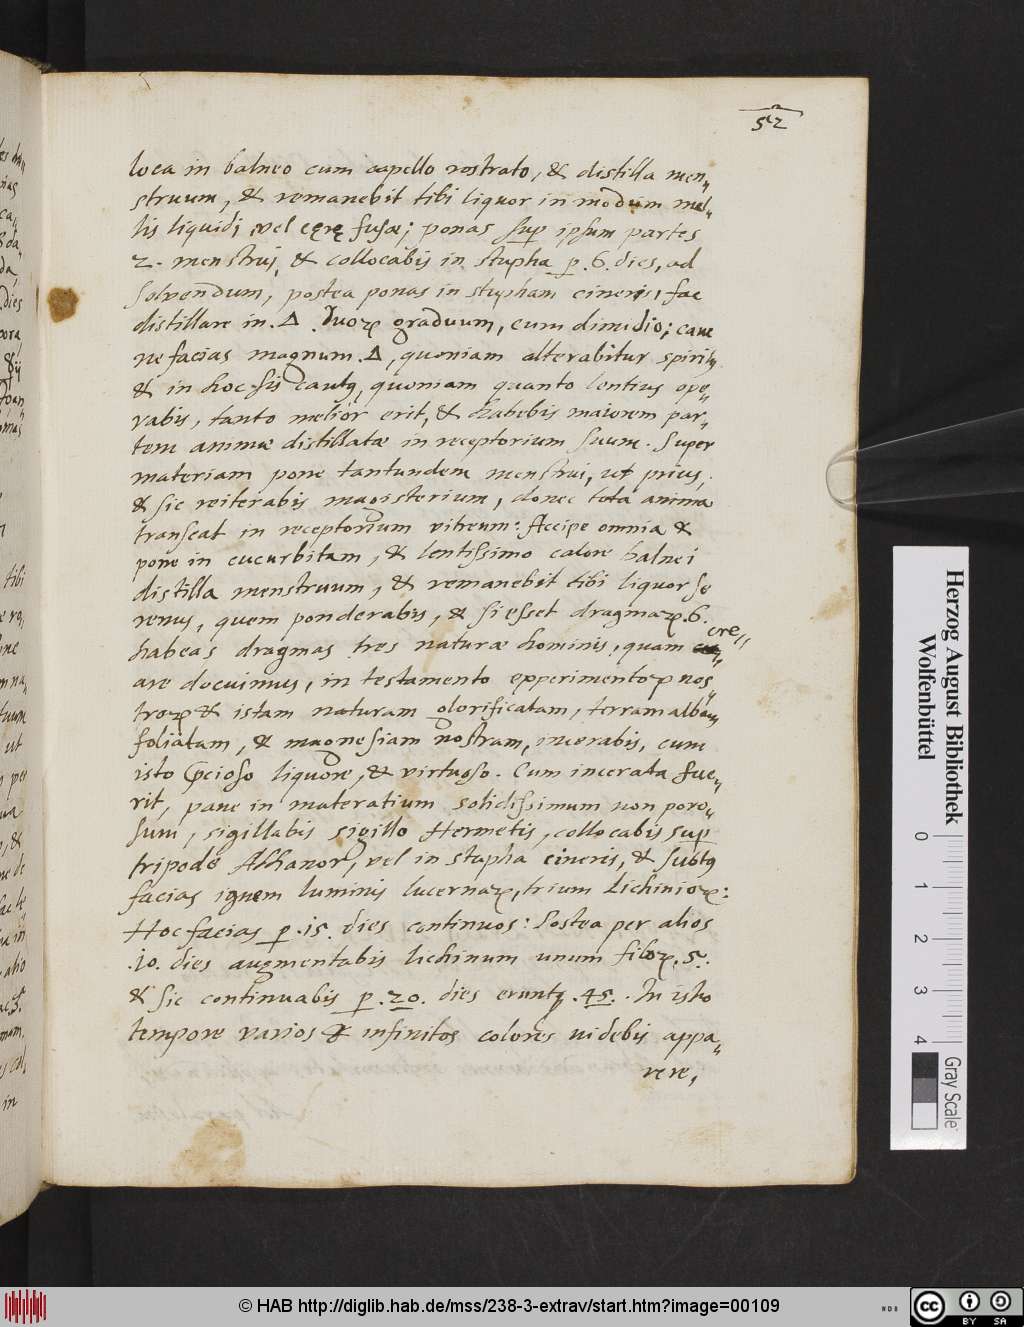 52
loca in balneo cum capello rostrato, & distilla men„
struum, & remanebit tibi liquor in modum mel„
lis liquidi vel cęrę fusæ; ponas sup ipsum partes
2. menstrui, & collocabis in stupha p .6. dies, ad
solvendum, postea ponas in stupham cineris, fac
distillare in .Δ. duoꝝ graduum, cum dimidio; cave
ne facias magnum .Δ, quoniam alterabitur spiritꝰ
& in hoc sis cautꝰ, quoniam quanto lentius ope„
rabis, tanto melior erit, & habebis maiorem par„
tem animæ distillatæ in receptorium suum. Super
materiam pone tantundem menstrui, ut prius.
& sic reiterabis magisterium, donec tota anima
transeat in receptorium vitreum: Accipe omnia &
pone in cucurbitam, & lentissimo calore balnei
distilla menstruum, & remanebit tibi liquor se
renus, quem ponderabis, & si esset dragmaꝝ 6.
habeas dragmas tres naturæ hominis, quam cre„
are docuimus, in testamento expperimentoꝝ nos„
troꝝ & istam naturam glorificatam, terram albam
foliatam, & magnesiam nostram, incerabis, cum
isto pcioso liquore, & virtuoso. Cum incerata fue„
rit, pone in materatium solidissimum non poro„
sum, sigillabis sigillo Hermetis, collocabis sup
tripode Athanor, vel in stupha cineris, & subtꝰ
facias ignem luminis lucernaꝝ, trium Lichinioꝝ:
Hoc facias p .15. dies continuos: Postea per alios
.10. dies augmentabis lichinum unum filoꝝ .5.
& sic continuabis p .20. dies erunt .45. In isto
tempore varios & infinitos colores videbis appa„
rere,
Herzog August Bibliothek
Wolfenbüttel
0 1 2 3 4
Gray Scale
© HAB http://diglib.hab.de/mss/238-3-extrav/start.htm?image=00109
cc BY SA